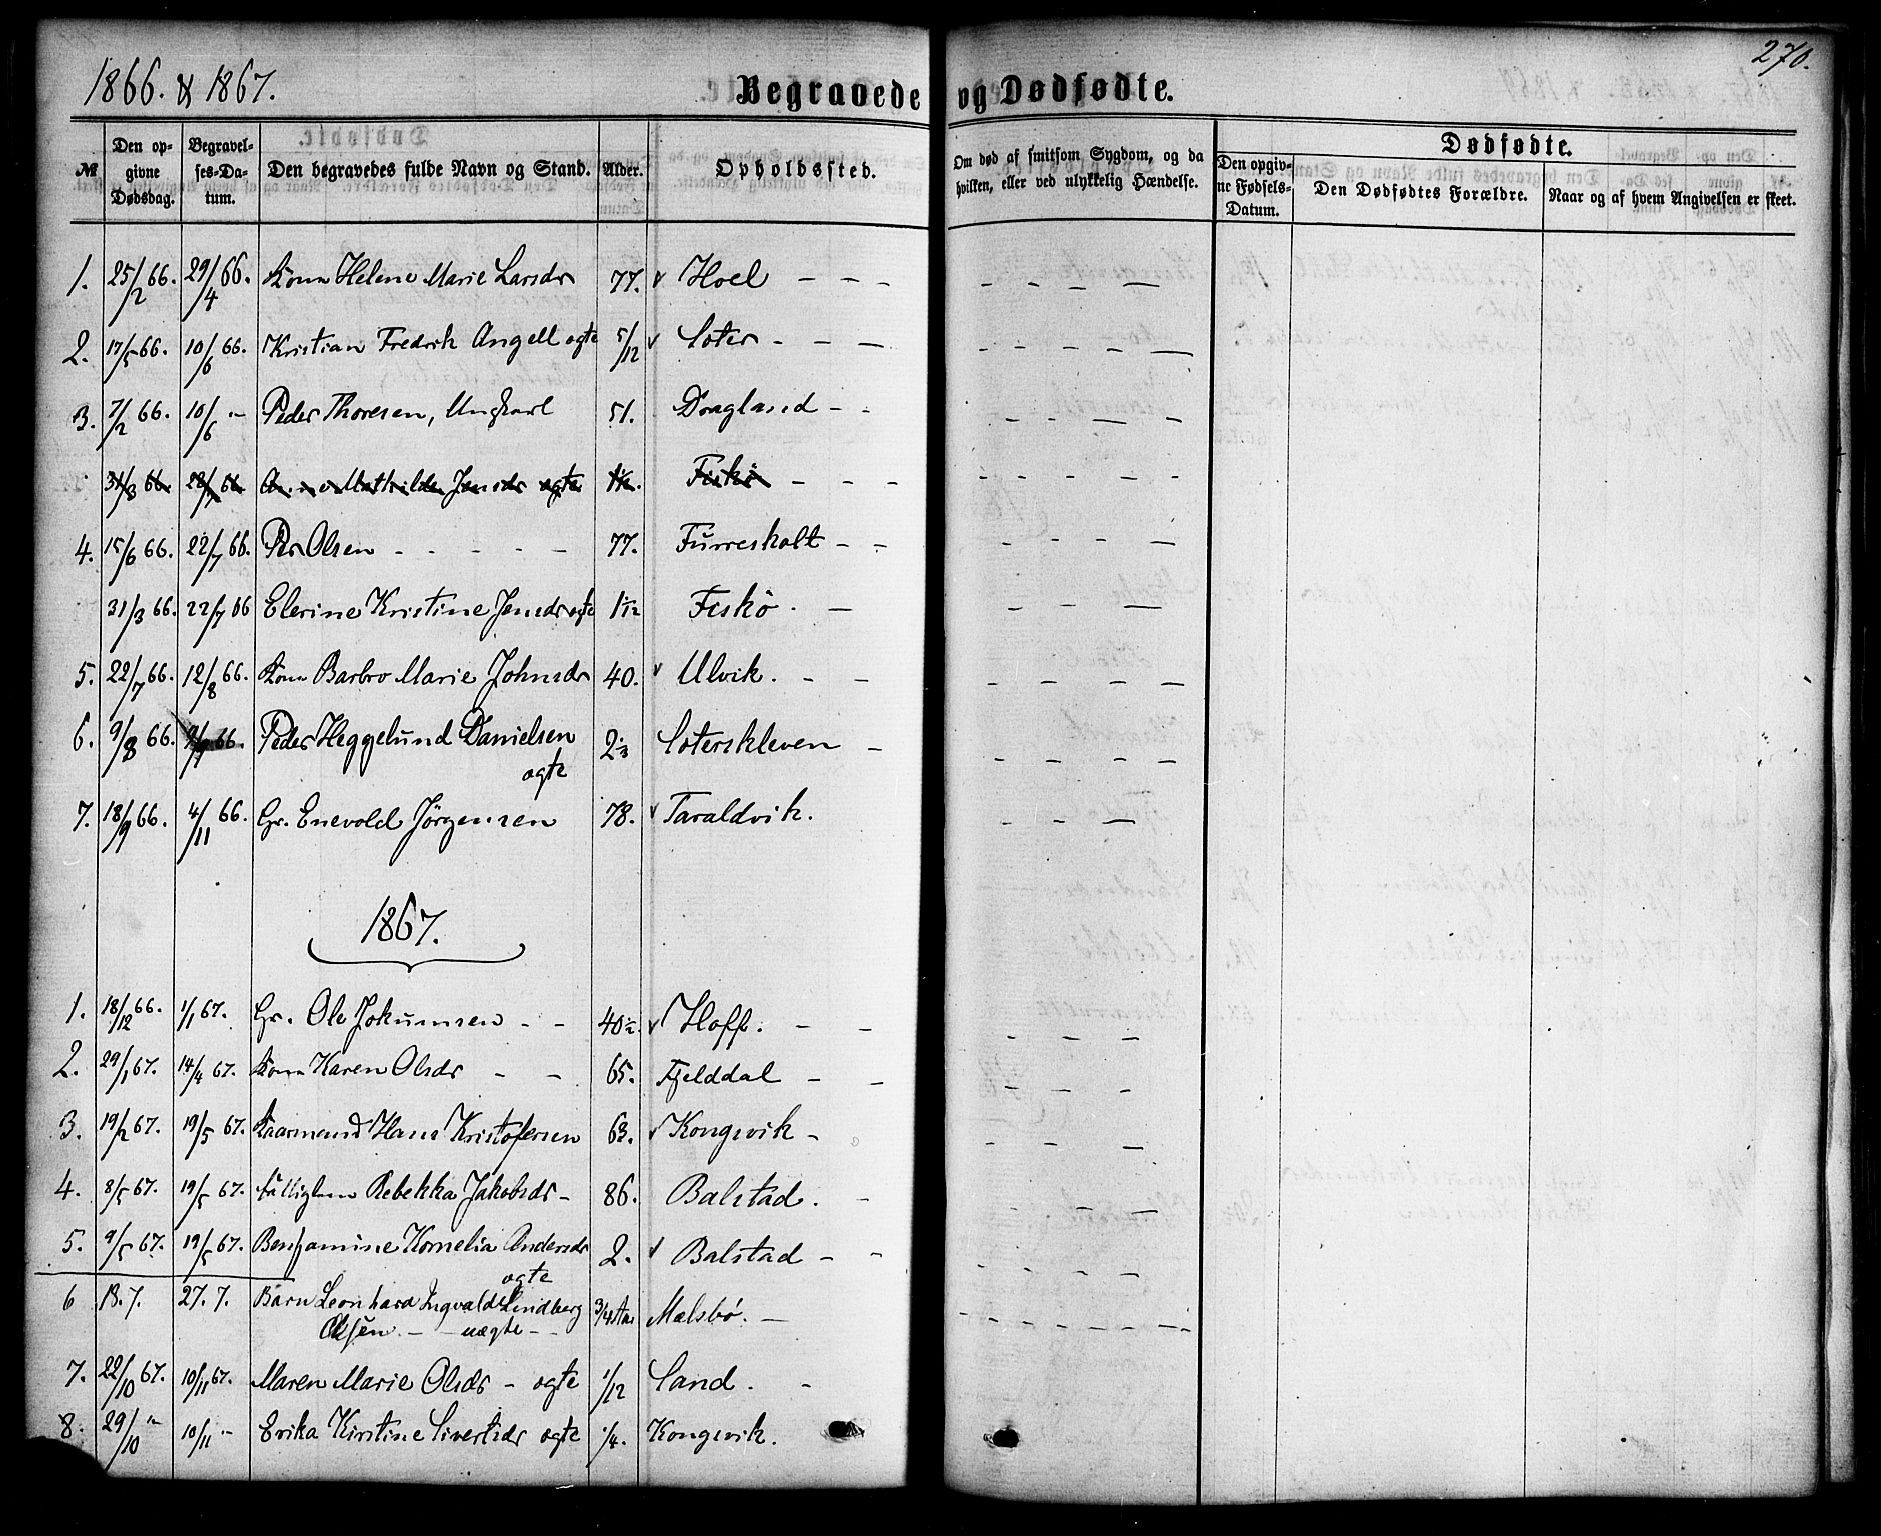 1866. & 1867.
Begravede og Dødfødte.
270.
№
Den opgivne Dødsdag.
Begravelses-Datum.
Den begravedes fulde Navn og Stand.
Alder.
Opholdssted.
Om død af smitsom Sygdom, og da hvilken, eller ved ulykkelig Hændelse.
Dødfødte.
Den opgivne Fødsels-Datum.
Den Dødfødtes Forældre.
Naar og af hvem Angivelsen er skeet.
1. 25/2 66. 29/4 66. Kone Helene Marie Larsdr 77. Hoel – – –
2. 17/5 66. 10/6 66. Kristian Fredrik Angell ægte 5/12 Soter – – –
3. 7/2 66. 10/6 "– Peder Thoresen, Ungkarl 51. Dragland – –
31/3 66. 22/7 66. Anne Mathilde Jensdr ægte Fiskö – – –
4. 15/6 66. 22/7 66. Per Olsen – – – – – 77. Furreskolt – –
31/3 66. 22/7 66 Elerine Kristine Jensdr ægte 1 1/12 Fiskö. –
5. 22/7 66. 12/8 66. Kone Barbro Marie Johnsdr 40. Ulvik. – –
6. 9/8 66. 9/9 66. Peder Heggelund Danielsen 2 Soterskleven –
ægte
7. 18/9 66. 4/11 66. Gr. Enevold Jörgensen 78. Taraldvik.
1867.
1. 18/12 66. 1/1 67. Gr. Ole Jokumsen – – 40 1/2 Hoff. – –
2. 29/1 67. 14/4 67. Kone Karen Olsdr – – 65. Fjelddal – –
3. 19/2 67. 19/5 67. Kaarmand Hans Kristofersen 63. Kongsvik –
4. 8/5 67. 19/5 67. Rebekka Jakobsdr – 86. Balstad. –
5. 9/5 67. 19/5 67. Benjamine Kornelia Andersdr 2. Balstad – –
ægte
6 13. 7. 27. 7. Barn Leonhard Ingvald Lindberg 3/4 Aar Mælsbö. –
Olsen. – – uægte – –
7. 22/10 67. 10/11 67. Maren Marie Olsdr – ægte 1/12 Sand. –
8. 29/10 "– 10/11 "– Erika Kirstine Sivertsdr ægte 1/4. Kongsvik.